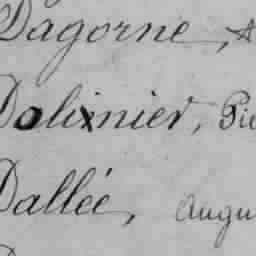 Dagorne,
Dolixnier, Pie
Dallée, Augu